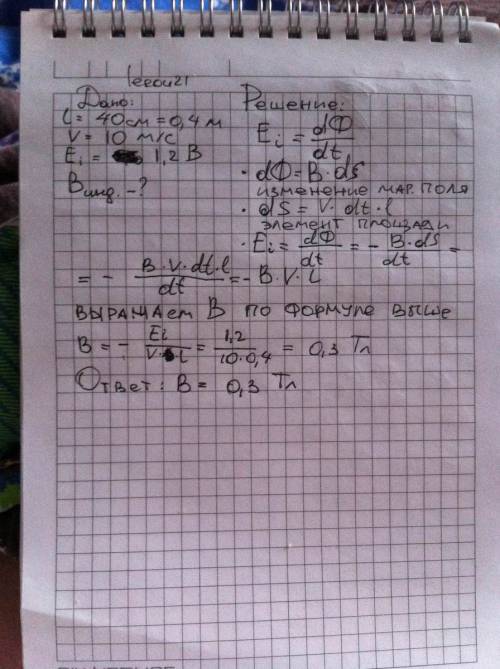 leeou21
Дано:
l = 40см = 0,4 м
V = 10 м/с
Ei = 1,2 В
Bинд. - ?
Решение:
Ei = dФ/dt
· dФ = B · dS
изменение маг. поля
· dS = V · dt · l
элемент площади
· Ei = dФ/dt = - B·dS/dt =
= - B·V·dt·l/dt = - B·V·L
выражаем B по формуле выше
B = - Ei/V·L = 1,2/10·0,4 = 0,3 Тл
Ответ: B = 0,3 Тл